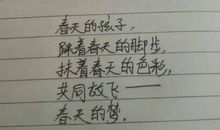 春天的孩子，
踩着春天的脚步，
抹着春天的色彩，
共同放飞——
春天的梦。